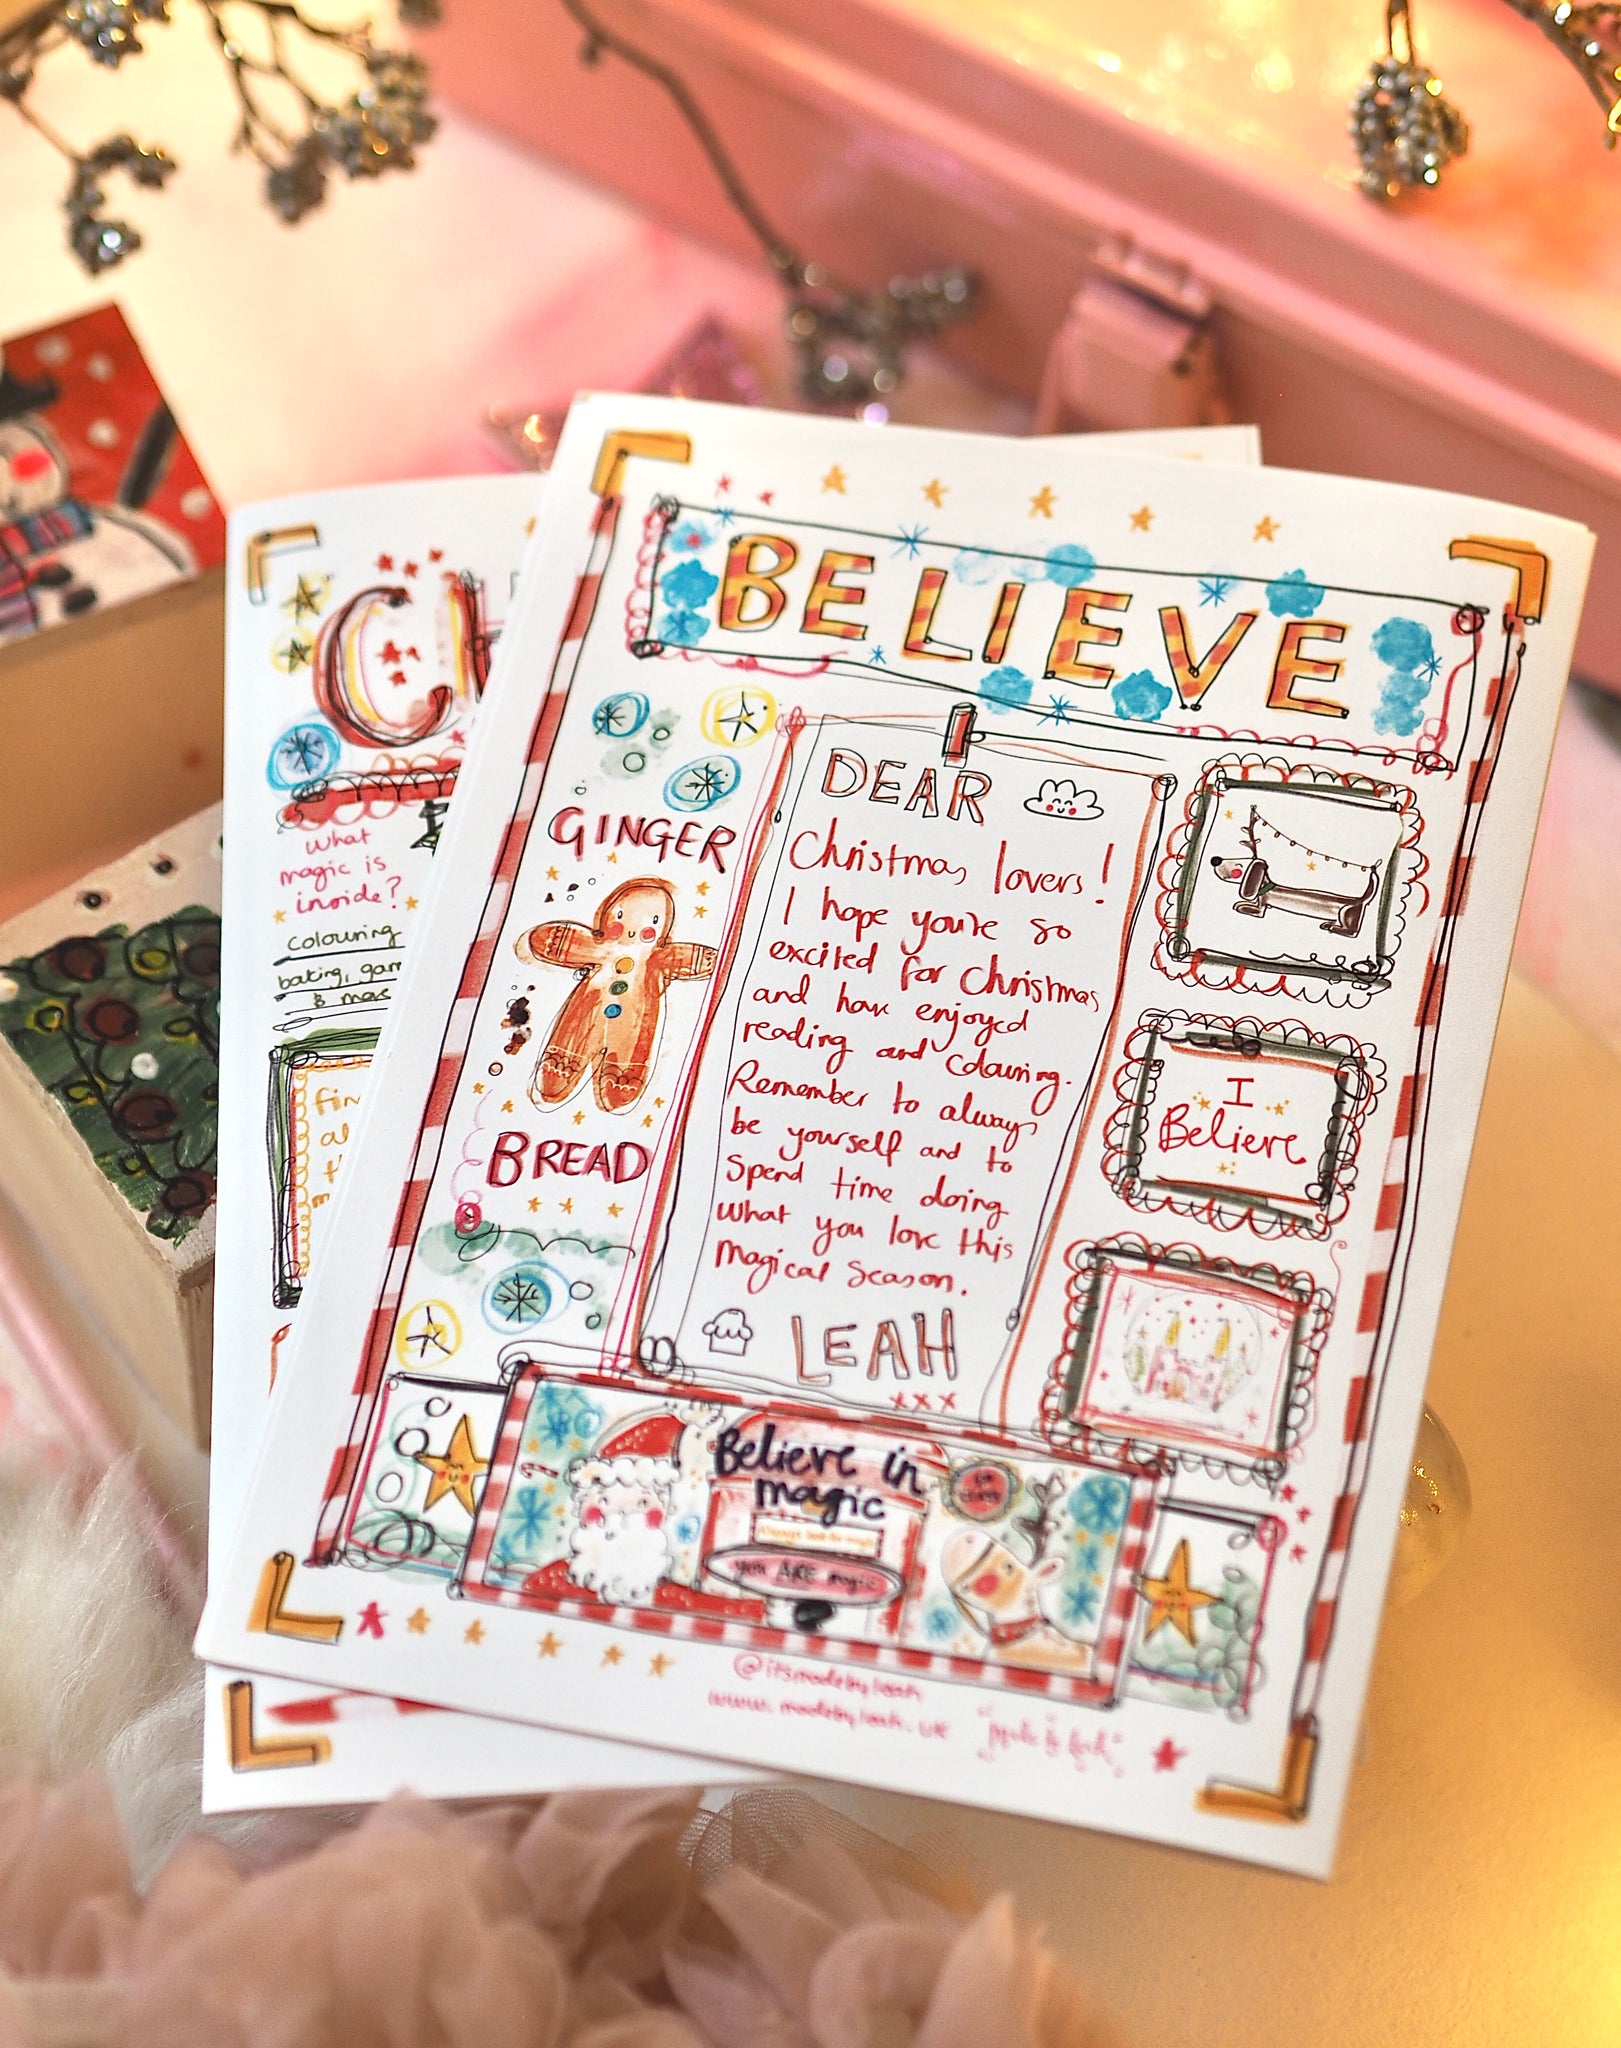 BELIEVE
DEAR
Christmas lovers!
I hope you're so
excited for Christmas
and have enjoyed
reading and colouring.
Remember to always
be yourself and to
spend time doing
what you love this
magical season.
LEAH
xxx
GINGER
BREAD
I
Believe
Believe in
magic
you ARE magic
@itsmadebyleah
www.madebyleah.uk
What
magic is
inside?
colouring
baking,
& more